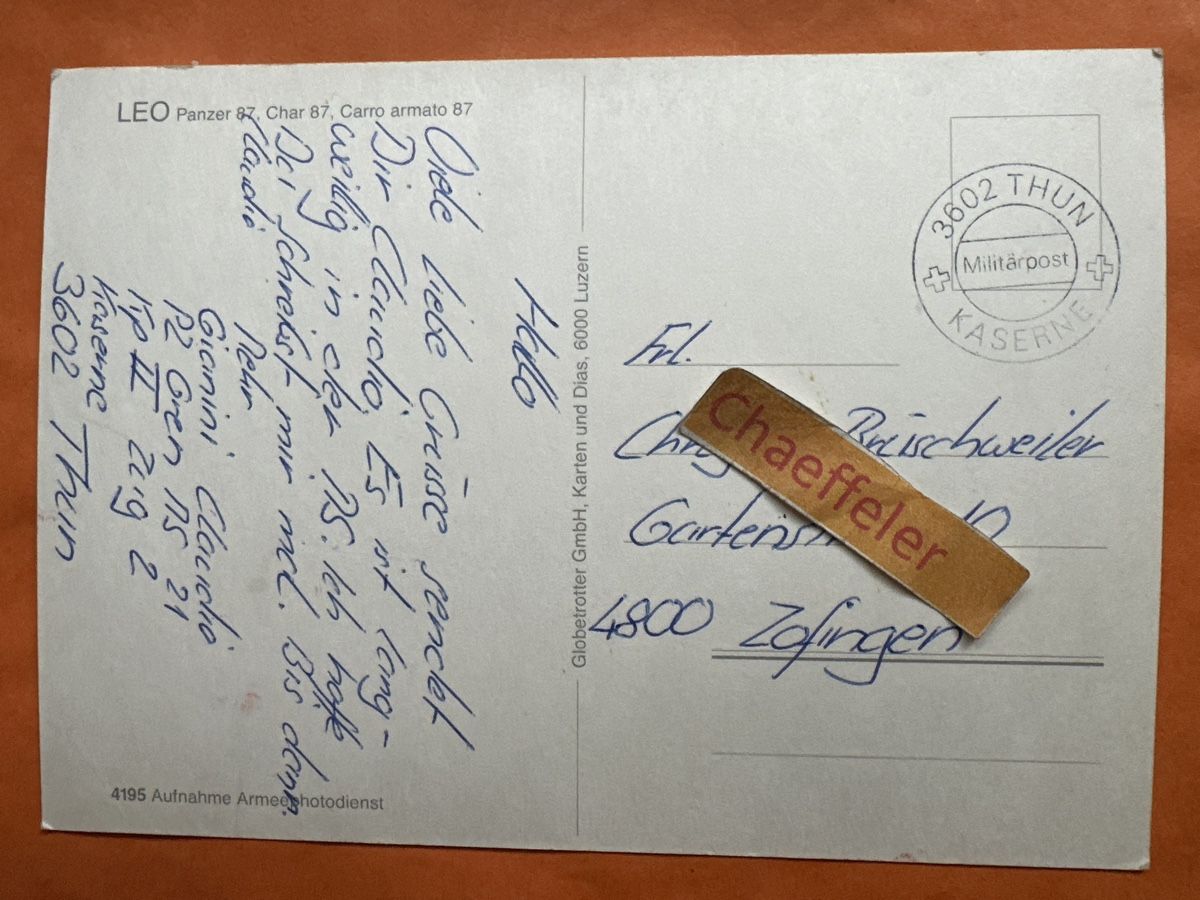 LEO Panzer 87, Char 87, Carro armato 87
Hallo
Viele liebe Grüsse sendet
Dir Claudio. Es ist lang-
weilig in der RS. Ich hoffe
Du schreibst mir mal. Bis dann.
Claudio
Gianini Claudio
Pz Gren RS 21
Kp II Zug 2
Kaserne
3602 Thun
4195 Aufnahme Armeephotodienst
Globetrotter GmbH, Karten und Dias, 6000 Luzern
3602 THUN
Militärpost
KASERNE
Frl.
Bräischweiler
4800 Zofingen
Chaeffeler